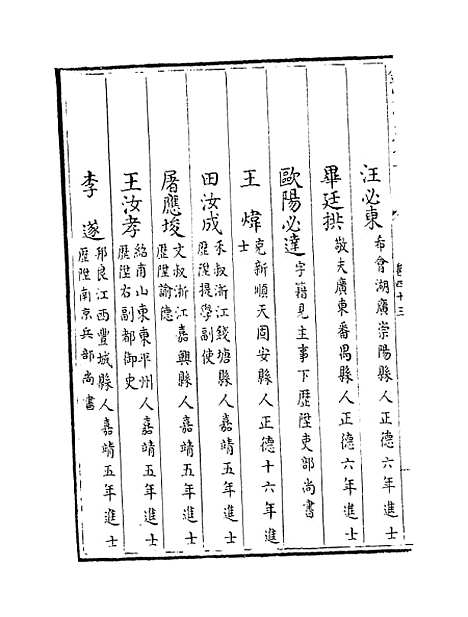 卷四十三
汪必東 布會湖廣崇陽縣人正德六年進士
畢廷拱 敬夫廣東番禺縣人正德六年進士
歐陽必達 字籍見主事下歷陞吏部尚書
王煒 克新順天固安縣人正德十六年進
士
田汝成 禾叔浙江錢塘縣人嘉靖五年進士
歷陞提學副使
屠應埈 文叔浙江嘉興縣人嘉靖五年進士
歷陞諭德
王汝孝 紹甫山東東平州人嘉靖五年進士
歷陞右副都御史
李遂 邦良江西豐城縣人嘉靖五年進士
歷陞南京兵部尚書